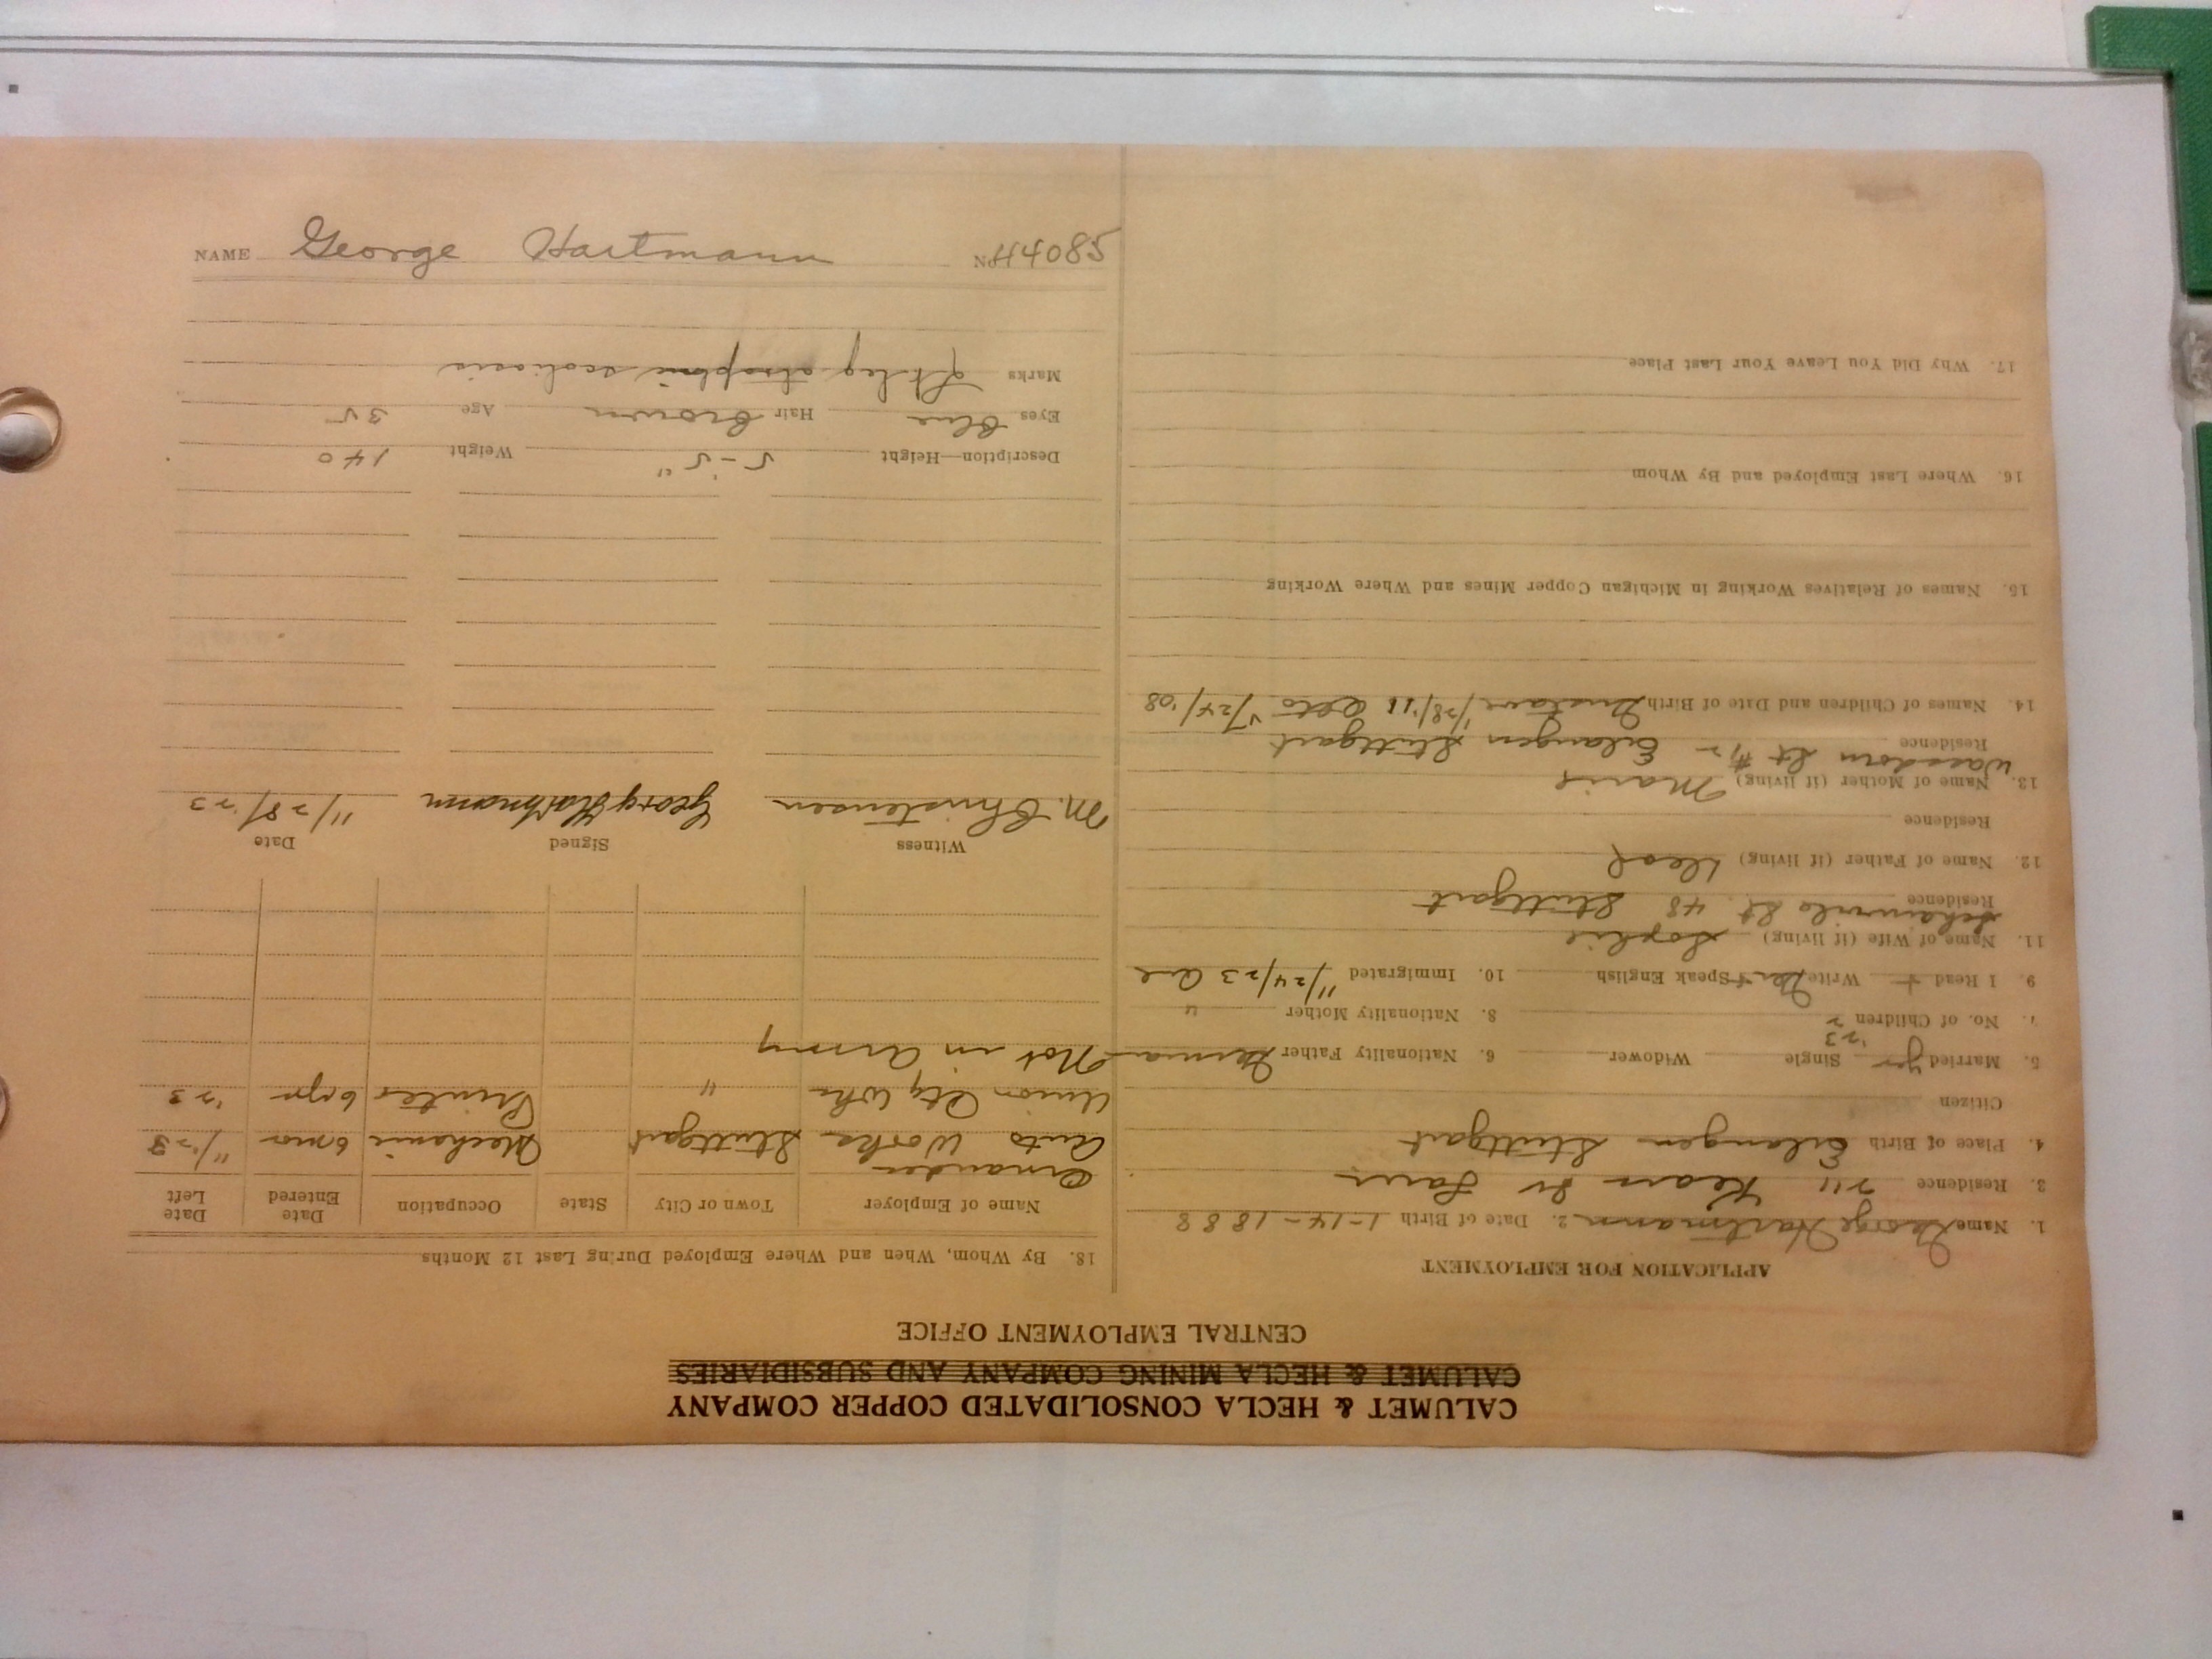 CALUMET & HECLA CONSOLIDATED COPPER COMPANY
CALUMET & HECLA MINING COMPANY AND SUBSIDIARIES
CENTRAL EMPLOYMENT OFFICE
APPLICATION FOR EMPLOYMENT
1. Name George Hartmann 2. Date of Birth 1-14-1888
3. Residence 211 Kearsarge
4. Place of Birth Erlangen Stuttgart
Citizen
5. Married yes Single Widower 6. Nationality Father German
'23
7. No. of Children 2 8. Nationality Mother "
9. I Read + Write Ger + Speak English 10. Immigrated 11/24/23
11. Name of Wife (if living) Sophie
Residence St. 48 Stuttgart
12. Name of Father (if living) dead
Residence
13. Name of Mother (if living) Marie
Residence St #12 Erlangen Stuttgart
14. Names of Children and Date of Birth Gustave 1/28/'11 Otto 5/24/'08
15. Names of Relatives Working in Michigan Copper Mines and Where Working
16. Where Last Employed and By Whom
17. Why Did You Leave Your Last Place
18. By Whom, When and Where Employed During Last 12 Months
Name of Employer Town or City State Occupation Date Entered Date Left
Auto Works Stuttgart Mechanic 6 mos 11/'23
Union Cty Wks " Printer 6 yr '23
Not in Army
Witness Signed Date
M. Christensen Georg Hartmann 11/28/23
Description—Height 5-5" Weight 140
Eyes Blue Hair Brown Age 35
Marks leg scoliosis
NAME George Hartmann No. H4085